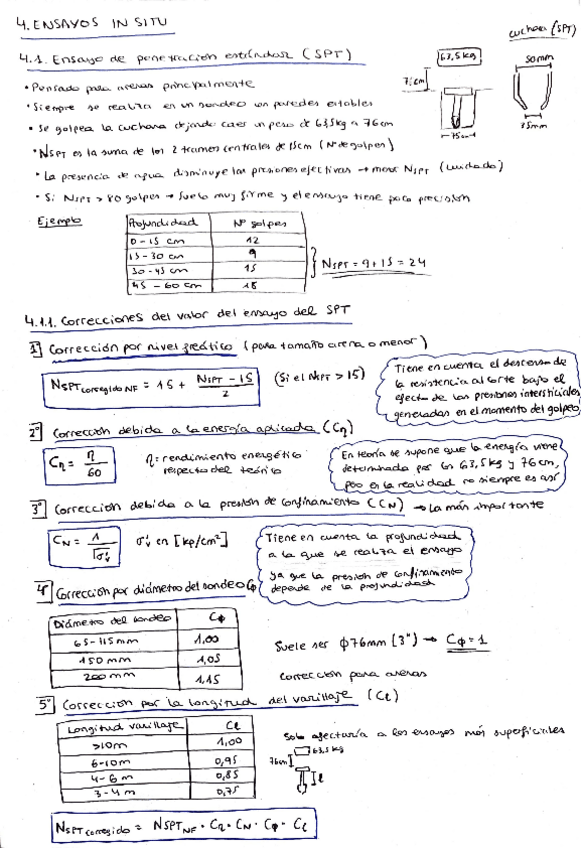 4. ENSAYOS IN SITU
cuchara (SPT)
4.1. Ensayo de penetración estándar (SPT)
63,5 kg
50mm
35mm
• Pensado para arenas principalmente
• Siempre se realiza en un sondeo con paredes estables
• Se golpea la cuchara dejando caer un peso de 63,5 kg a 76 cm
• NSPT es la suma de los 2 tramos centrales de 15cm (Nº de golpes)
• La presencia de agua disminuye las presiones efectivas → menor NSPT (cuidado)
• Si NSPT > 80 golpes → suelo muy firme y el ensayo tiene poca precisión
Ejemplo
Profundidad Nº golpes
0-15 cm 12
15-30 cm 9
30-45 cm 15
45-60 cm 18
NSPT = 9+15 = 24
4.1.1. Correcciones del valor del ensayo del SPT
1º Corrección por nivel freático (para tamaño arena o menor)
NSPT corregido NF = 15 + (NSPT - 15)/2 (Si el NSPT > 15)
Tiene en cuenta el descenso de
la resistencia al corte bajo el
efecto de las presiones intersticiales
generadas en el momento del golpeo
2º Corrección debida a la energía aplicada (Cη)
Cη = η/60
η = rendimiento energético
respecto del teórico
En teoría se supone que la energía viene
determinada por los 63,5 kg y 76cm,
pero en la realidad no siempre es así
3º Corrección debida a la presión de confinamiento (CN) → La más importante
CN = 1/√σ'v
σ'v en [kp/cm²]
Tiene en cuenta la profundidad
a la que se realiza el ensayo
ya que la presión de confinamiento
depende de la profundidad
4º Corrección por diámetro del sondeo Cϕ
Diámetro del sondeo Cϕ
65-115 mm 1,00
150 mm 1,05
200 mm 1,15
Suele ser ϕ76mm (3") → Cϕ = 1
corrección para arenas
5º Corrección por la longitud del varillaje (Cl)
Longitud varillaje Cl
>10m 1,00
6-10m 0,95
4-6 m 0,85
3-4 m 0,75
Solo afectaría a los ensayos más superficiales
63,5 kg
76cm
l
NSPT corregido = NSPT NF · Cη · CN · Cϕ · Cl